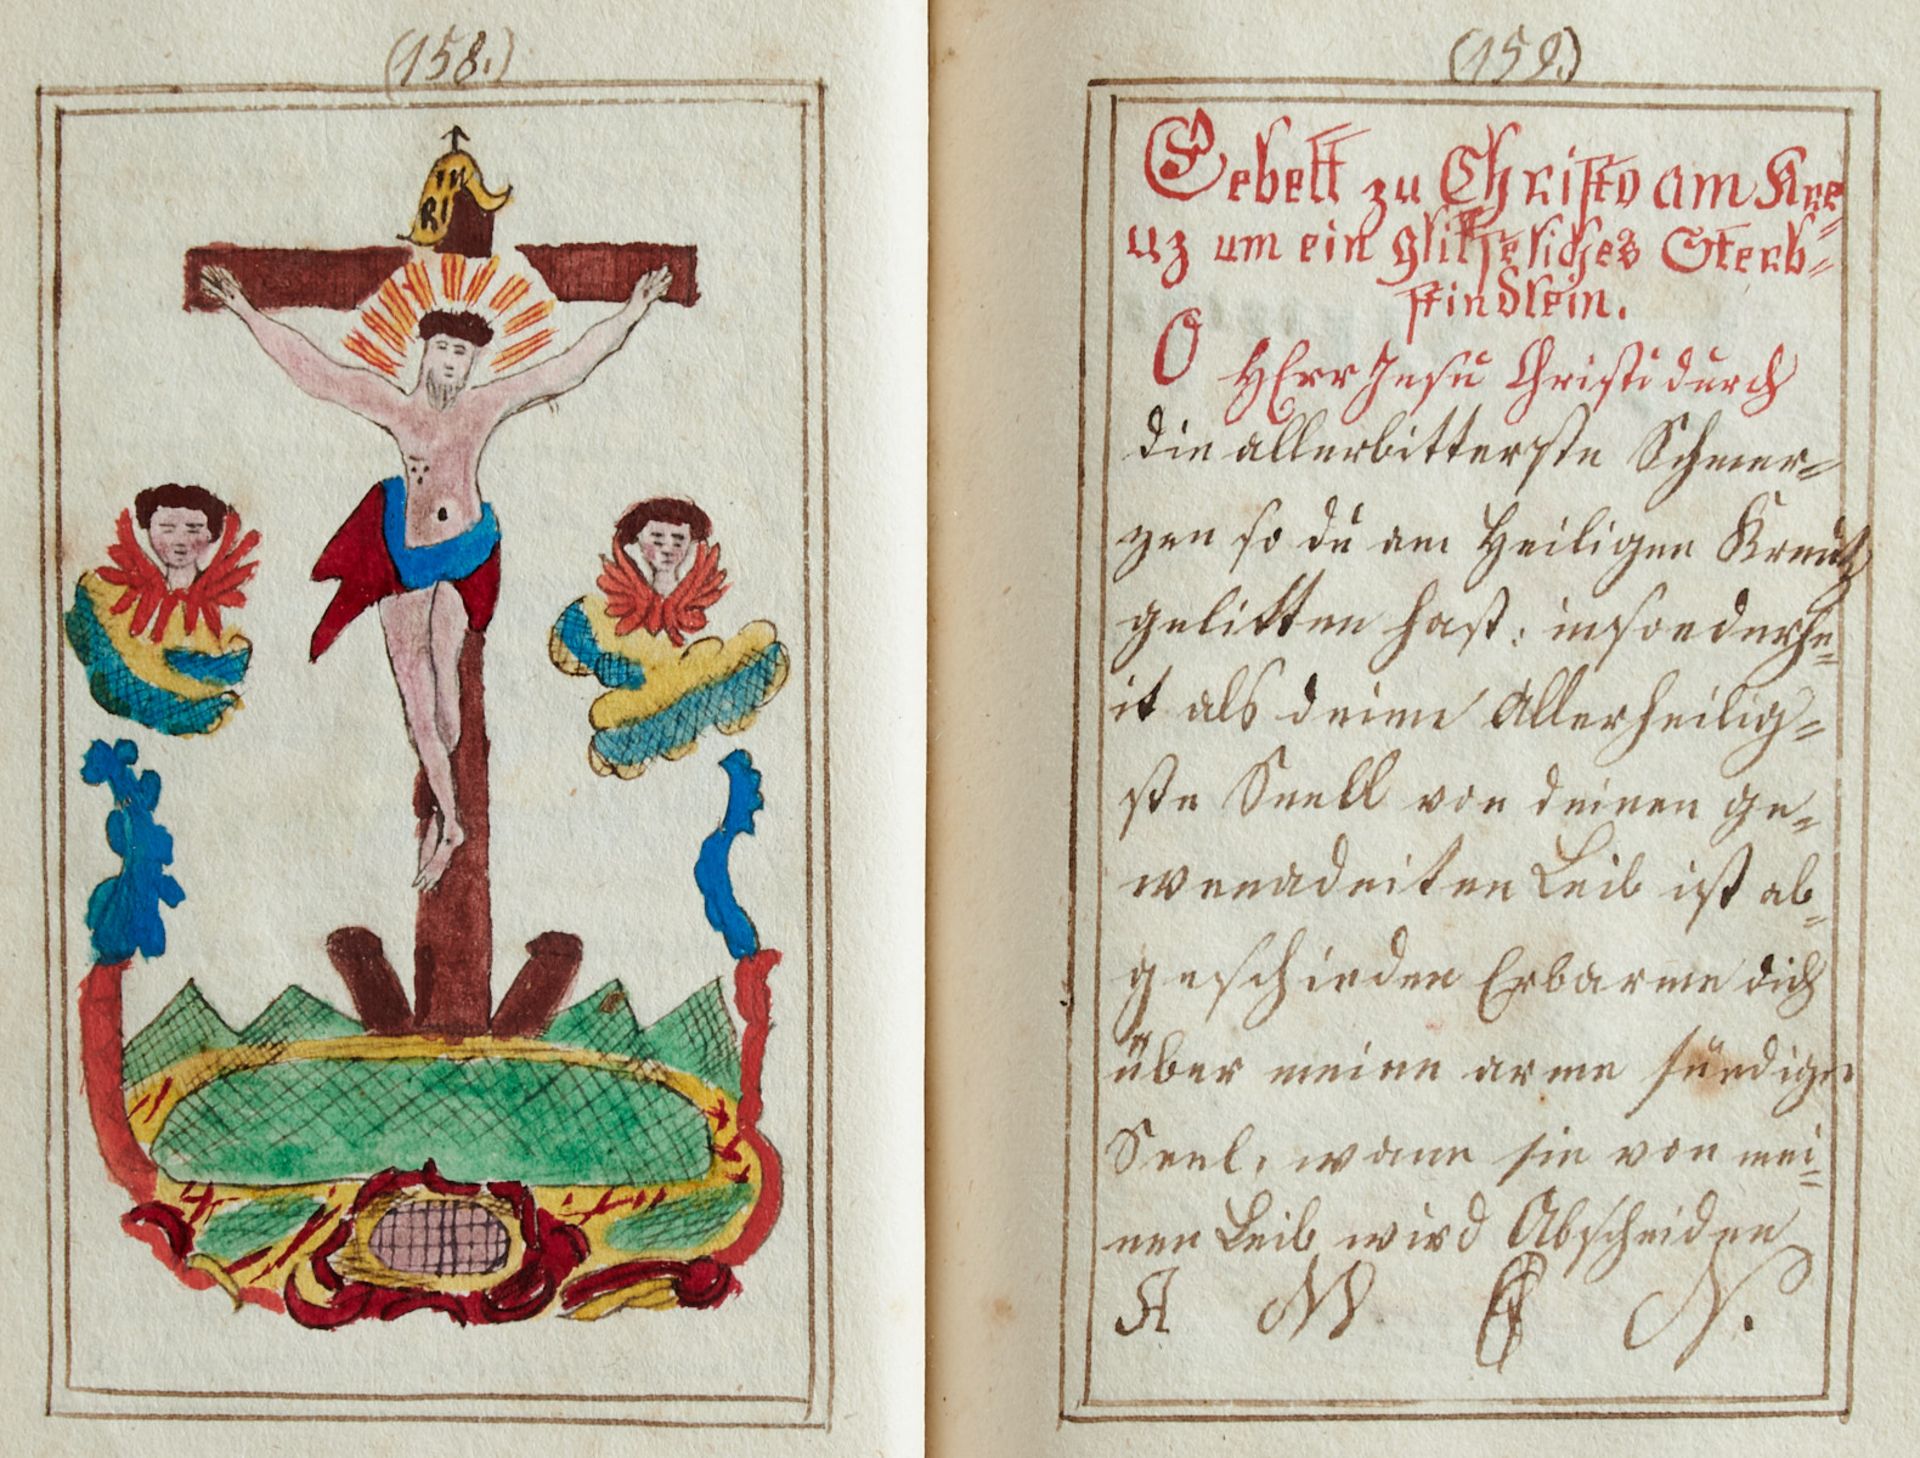 (158.)
IN
RI
(159.)
Gebett zu Christo am Kre=
uz um ein glikseliches Sterb=
stindlein.
O HErr Jesu Christi durch
die allerbitterste Schmer=
zen so du am Heiligen Kreutz
gelitten hast: insonderhe=
it als deine Allerheilig=
ste Seell von deinen ge=
wenadeiten Leib ist ab=
geschieden Erbarme dich
über meine arme sündige
Seel, wann sie von mei=
nen Leib wird Abscheiden
A M E N.